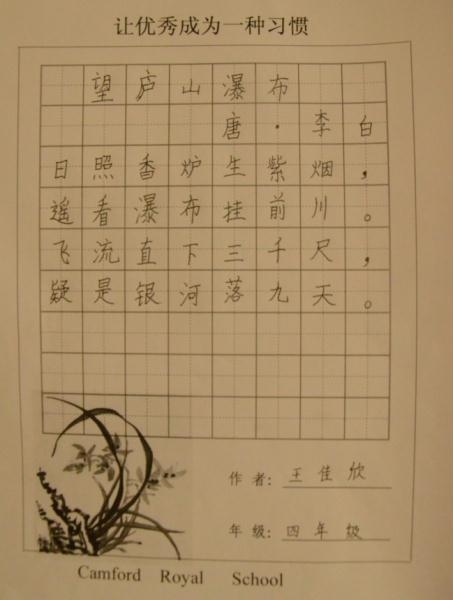 让优秀成为一种习惯
望庐山瀑布
唐·李白
日照香炉生紫烟，
遥看瀑布挂前川。
飞流直下三千尺，
疑是银河落九天。
作者：王佳欣
年级：四年级
Camford Royal School